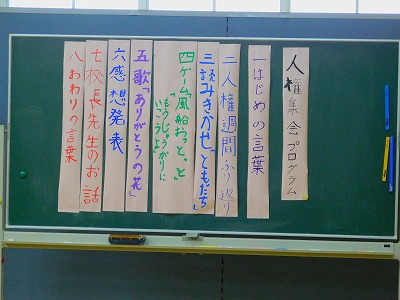 人権集会プログラム
一はじめの言葉
二人権週間ふり返り
三読みきかせ「ともだち」
四ゲーム「風船おっと、っと」
「もうじゅうがりに
いこうよ」
五歌「ありがとうの花」
六感想発表
七校長先生のお話
八おわりの言葉